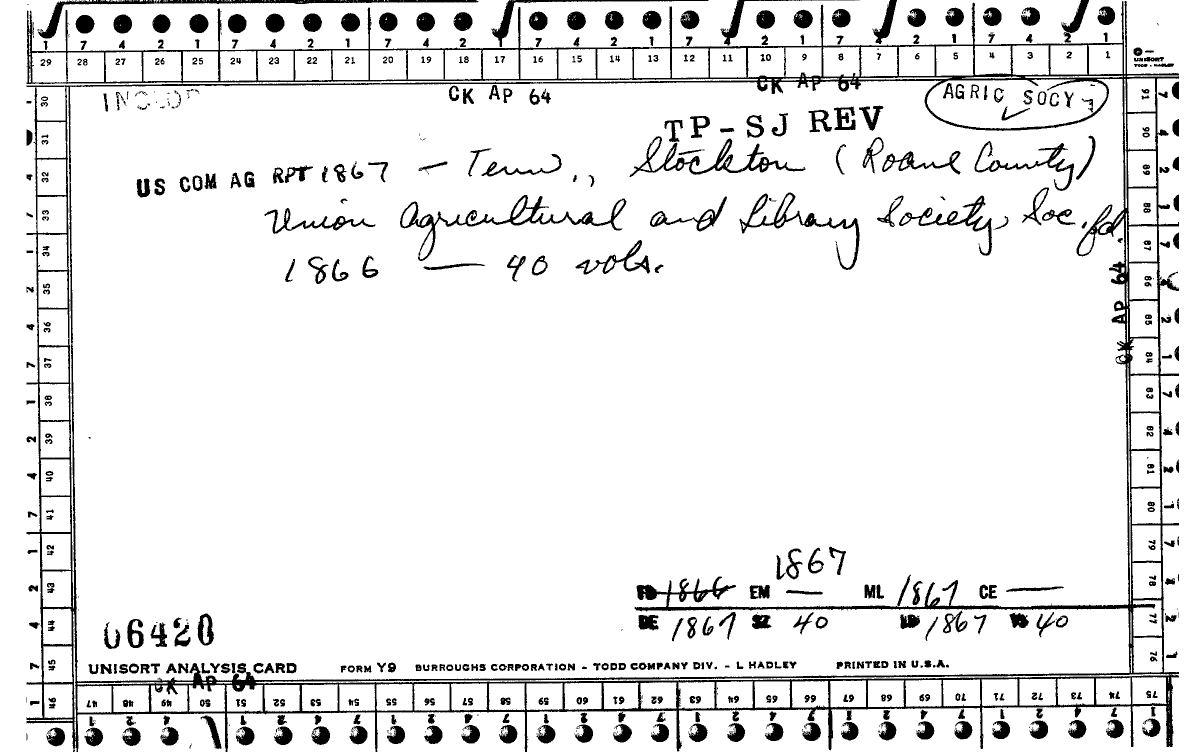 1 7 4 2 1 7 4 2 1 7 4 2 1 7 4 2 1 7 4 2 1 7 4 2 1 7 4 2 1
29 28 27 26 25 24 23 22 21 20 19 18 17 16 15 14 13 12 11 10 9 8 7 6 5 4 3 2 1
UNISORT
TODD - HADLEY
CK AP 64 CK AP 64 AGRIC SOCY
TP-SJ REV
US COM AG RPT 1867 — Tenn., Stockton (Roane County)
Union Agricultural and Library Society, Soc. fd.
1866 — 40 vols.
CK AP 64
30
31
32
33
34
35
36
37
38
39
40
41
42
43
44
45
46
91
90
89
88
87
86
85
84
83
82
81
80
79
78
77
76
1867
FD 1866 EM — ML 1867 CE —
DE 1867 SZ 40 LD 1867 VS 40
06420
UNISORT ANALYSIS CARD FORM Y9 BURROUGHS CORPORATION - TODD COMPANY DIV. - L HADLEY PRINTED IN U.S.A.
CK AP 64
47 48 49 50 51 52 53 54 55 56 57 58 59 60 61 62 63 64 65 66 67 68 69 70 71 72 73 74 75